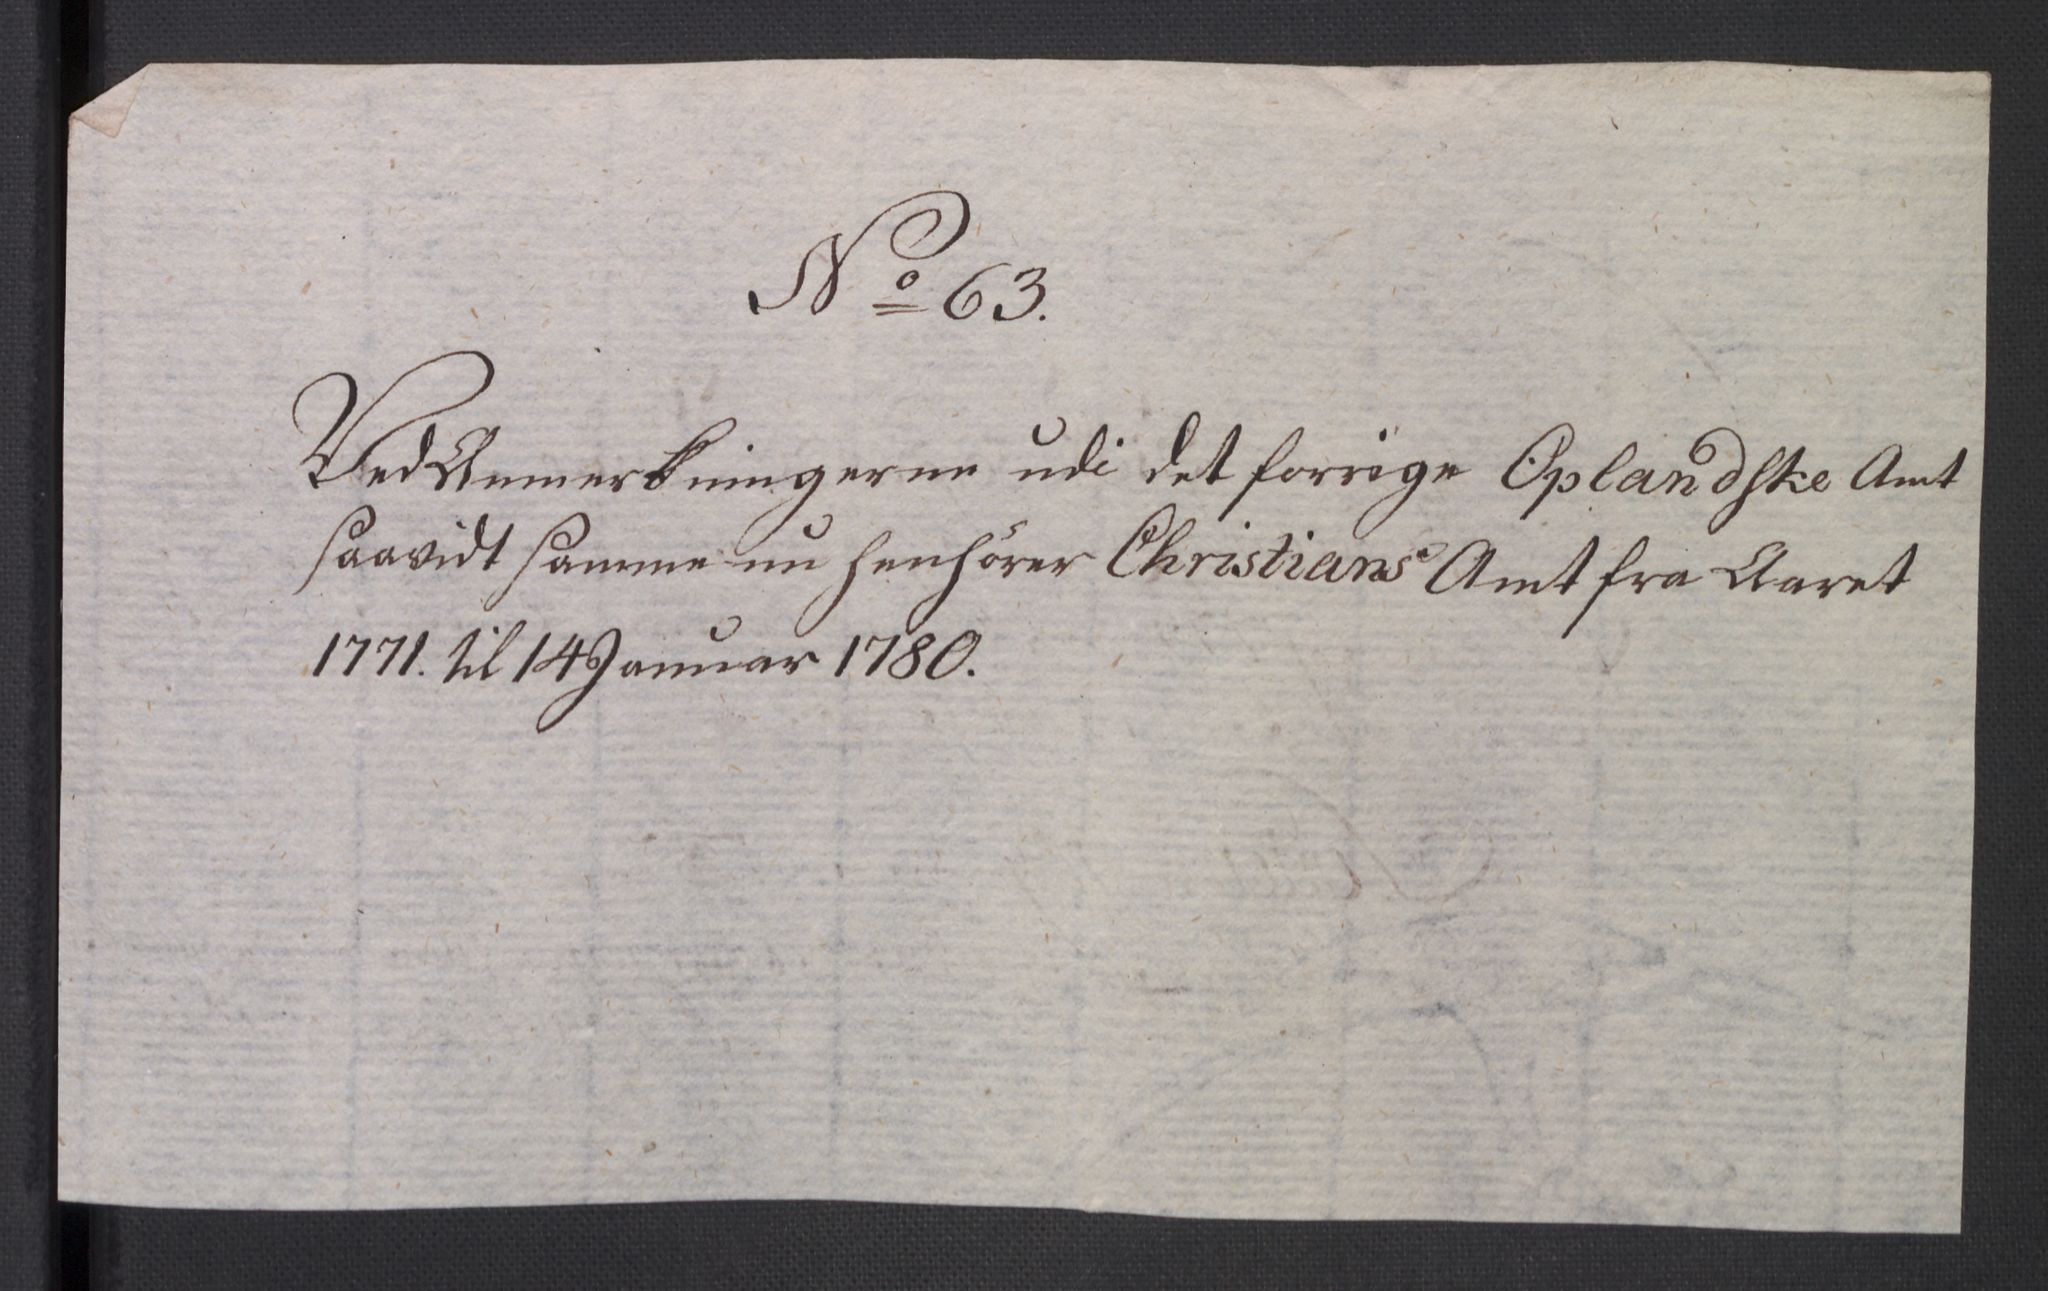 No 63.
Ved Anmerkningerne udi det forrige Oplandske Amt
saavidt samme nu henhörer Christians Amt fra Aaret
1771. til 14 Januar 1780.